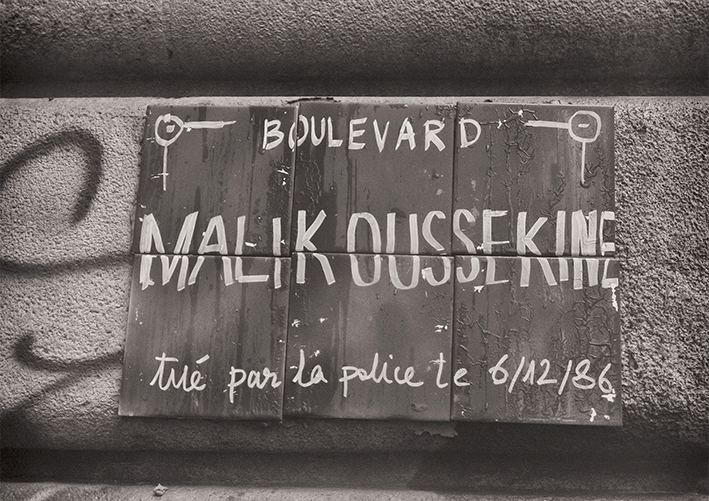 BOULEVARD
MALIK OUSSEKINE
tué par la police le 6/12/86